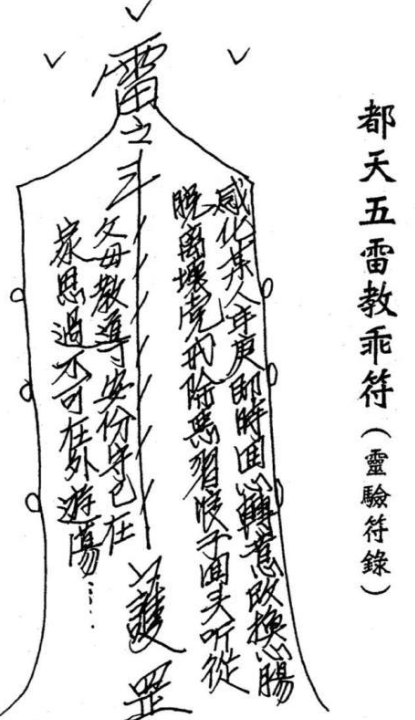 都天五雷教乖符(靈驗符錄)
雷
感化某人年庚即時回心轉意改換心腸
脱离壞党戒除恶習浪子回头听從
父母教導安份守已在
家思過不可在外遊蕩……
護
罡